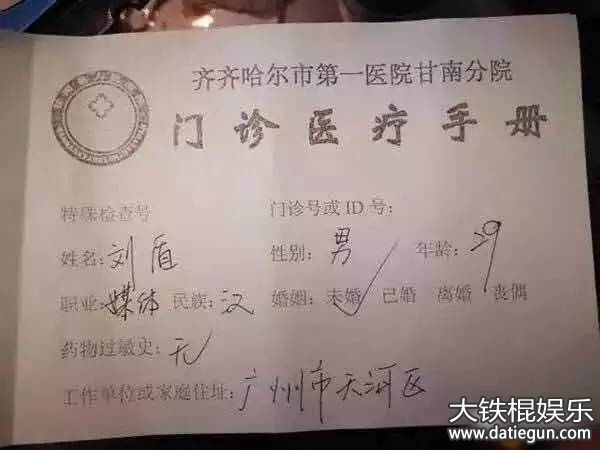 齐齐哈尔市第一医院甘南分院
门诊医疗手册
特殊检查号 门诊号或ID号:
姓名:刘盾 性别:男 年龄:29
职业:媒体 民族:汉 婚姻:未婚✓ 已婚 离婚 丧偶
药物过敏史:无
工作单位或家庭住址:广州市天河区
大铁棍娱乐
www.datiegun.com